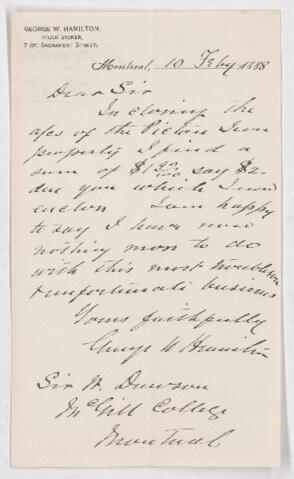 GEORGE W. HAMILTON,
STOCK BROKER,
7 ST. SACRAMENT STREET.
Montreal, 10 Feby 1888
Dear Sir
In closing the
a/cs of the Pictou Iron
property I find a
sum of $1 90/100 say $2-
due you which I now
enclose I am happy
to say I have now
nothing more to do
with this most troublesome
& unfortunate business
Yours faithfully
George W Hamilton
Sir W. Dawson
McGill College
Montreal